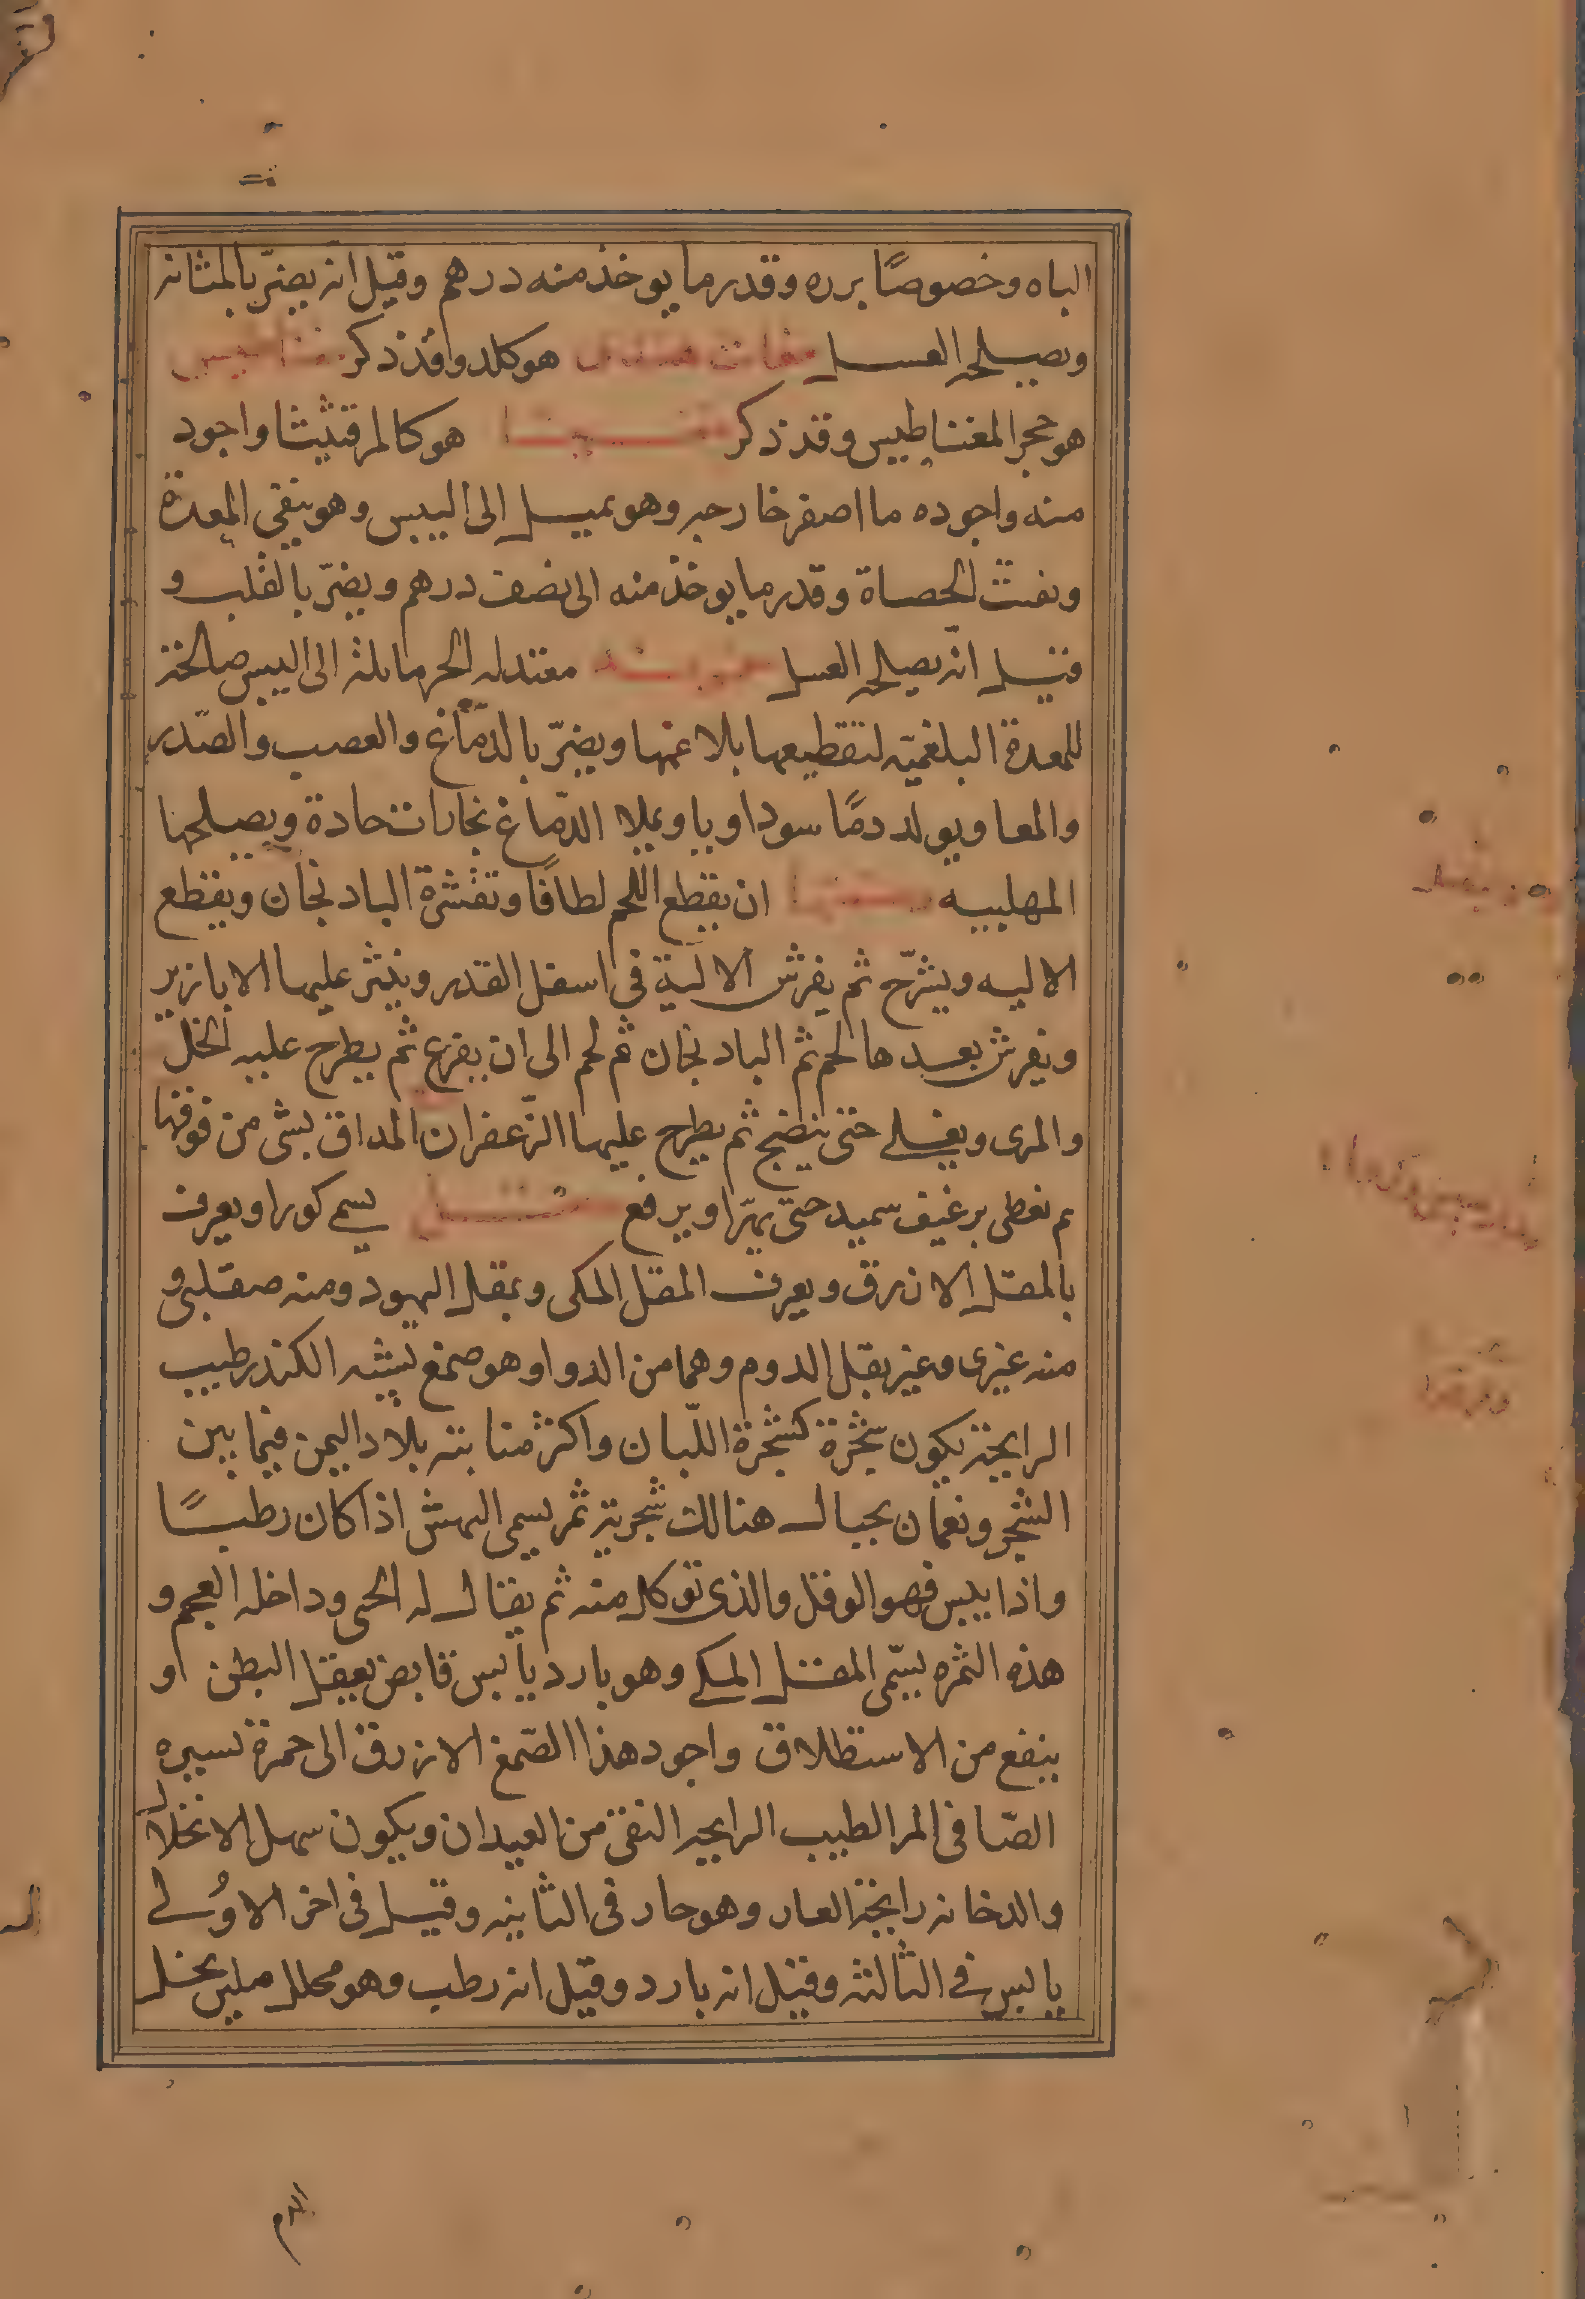 الباه وخصوصًا برره وقدر ما يوخذ منه درهم وقيل انه يضرّ بالمثانه
ويصلحه العسل مغاث هندى هو كلدوا قد ذكر مغناطيس
هو حجر المغناطيس وقد ذكر مغنيسيا هو كالمرقثيثا واجود
منه واجوده ما اصفر خارجه وهو يميل الى اليبس وهو ينقى المعدة
ويفتت الحصاة وقدر ما يوخذ منه الى نصف درهم ويضرّ بالقلب و
قيل انّه يصلحه العسل معتدله الحر مايله الى اليبس صالحة
للمعدة البلغميّه لتقطيعها بلاغمها ويضرّ بالدّماغ والعصب والصّدر
والمعا ويولد دمًا سوداويا ويملا الدّماغ بخارات حادة ويصلحها
المهلبيه وصفتها ان يقطع اللحم لطافًا وتقشرة الباد نجان ويقطع
الاليه ويشرّح ثم يفرش الالية فى اسفل القدر وينثر عليها الابازير
ويفرش بعدها لحم ثم الباد نجان ثم لحم الى ان يفرغ ثم يطرح عليه الخل
والمرى ويغلى حتى ينضج ثم يطرح عليها الزّعفران المداق بشى من فوقها
م تغطى برغيف سميد حتى يهرّا ويرفع مقل يسمى كورا ويعرف
بالمقل الازرق ويعرف المقل المكى وبمقل اليهود ومنه صقلبى و
منه عنبرى وغيره بقل الدوم وهما من الدوا وهو صمغ يشبه الكندر طيب
الرايحة يكون شجرة كشجرة اللّبان واكثر منابته بلاد اليمن فيما بين
الشحر ونعمان بجبال هنالك شجريته ثمر يسمى البهش اذا كان رطبًا
واذا يبس فهو الوقل والذى توكل منه ثم يقال له الحتى وداخله العجم و
هذه الثمره يسمّى المقل المكى وهو بارد يابس قابض يعقل البطن او
ينفع من الاستطلاق واجود هذا الصّمغ الازرق الى حمرة يسيره
الصّافى المر الطيب الرايحه النقى من العيدان ويكون سهل الانحلال
والدخانه رايحة الغار وهو حار فى الثانيه وقيل فى اخر الاولى
يابس فى الثالثه وقيل انه بارد وقيل انه رطب وهو محلل ملين يحلل
الدم